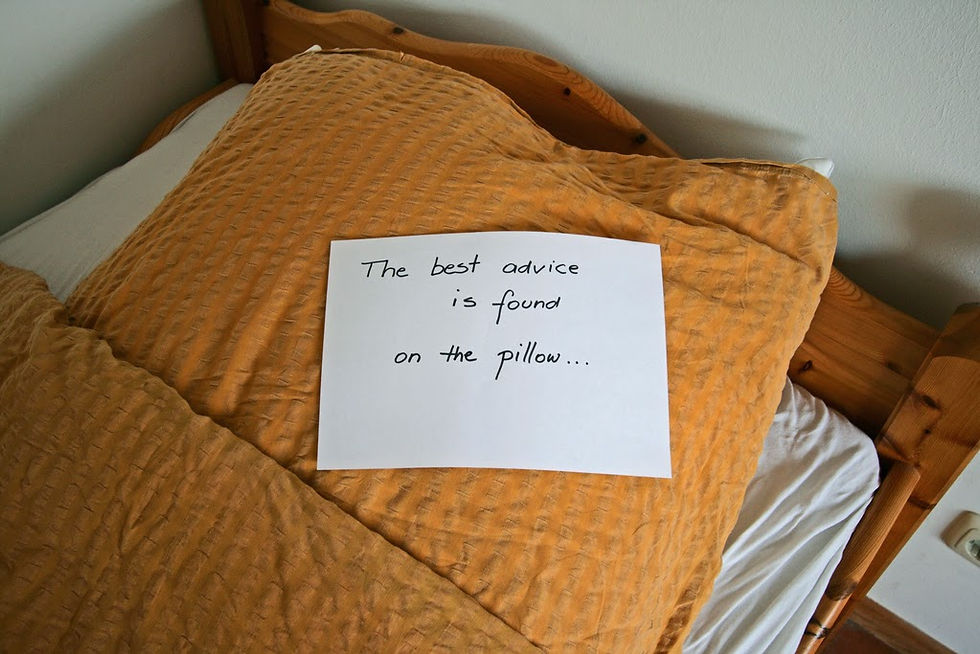 The best advice
is found
on the pillow...